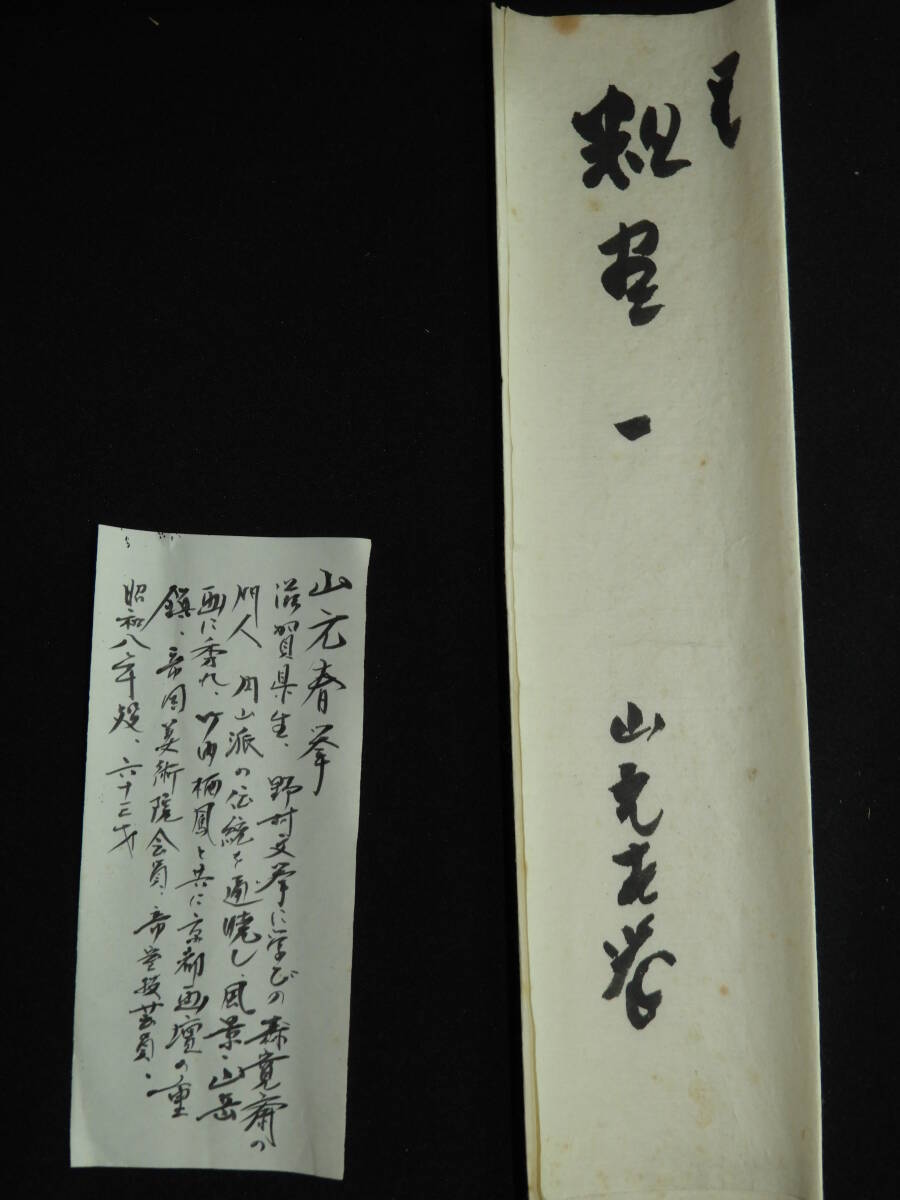 呈
粗画一
山元春挙
山元春挙
滋賀県生、野村文挙に学びの森寛斎の
門人 円山派の伝統を通暁し、風景・山岳
画に秀れ、竹内栖鳳と共に京都画壇の重
鎮、帝国美術院会員・帝室技芸員、
昭和八年歿、六十三才